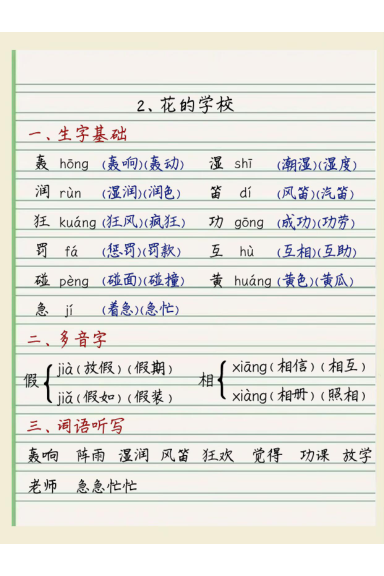 2、花的学校
一、生字基础
轰 hōng (轰响)(轰动) 湿 shī (潮湿)(湿度)
润 rùn (湿润)(润色) 笛 dí (风笛)(汽笛)
狂 kuáng (狂风)(疯狂) 功 gōng (成功)(功劳)
罚 fá (惩罚)(罚款) 互 hù (互相)(互助)
碰 pèng (碰面)(碰撞) 黄 huáng (黄色)(黄瓜)
急 jí (着急)(急忙)
二、多音字
假 { jià (放假) (假期) 相 { xiāng (相信) (相互)
jiǎ (假如) (假装) xiàng (相册) (照相)
三、词语听写
轰响 阵雨 湿润 风笛 狂欢 觉得 功课 放学
老师 急急忙忙